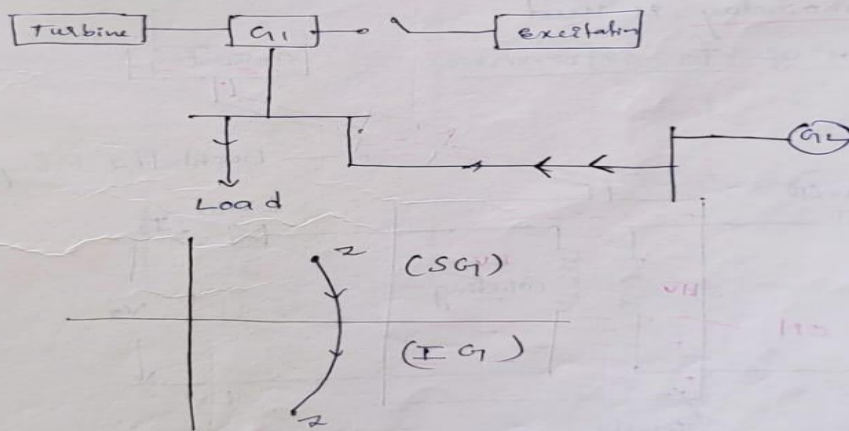 Turbine G1 Excitation
G2
Load
z (SG)
(IG)
z